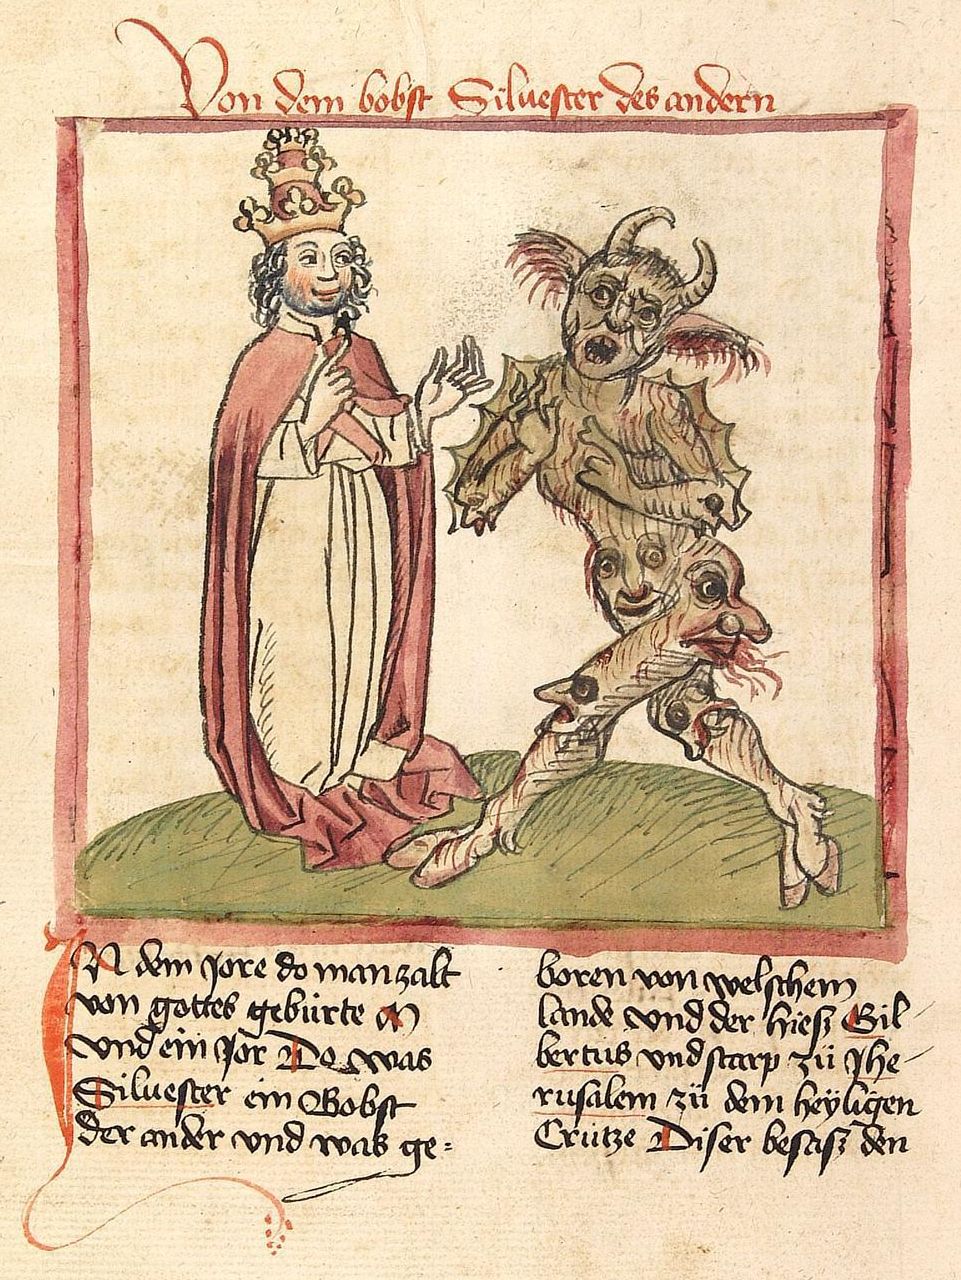 Von dem bobst Siluester des andern
IN dem Jore do man zalt
von gottes gebürte M
vnd ein Jor Do was
Siluester ein Bobst
der ander vnd was ge=
boren von welschem
lande vnd der hiesz Gil
bertus vnd starp zü Jhe-
rusalem zü dem heyligen
Crütze Diser besasz den